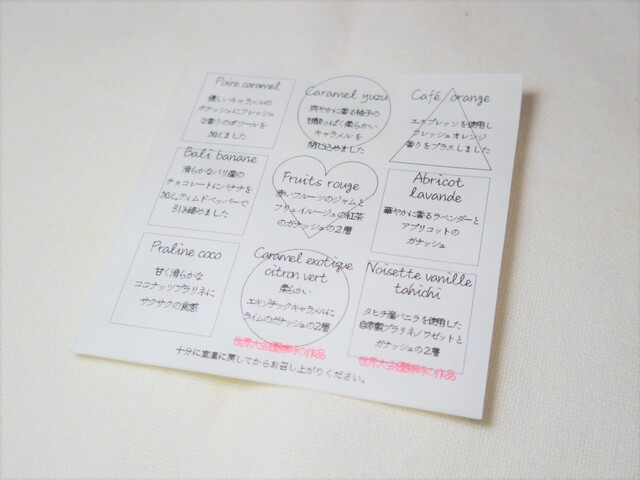 Poire caramel
優しいキャラメルの
ガナッシュにフレッシュ
な香りのポワールを
加えました
Caramel yuzu
爽やかに香る柚子の
甘酸っぱく柔らかい
キャラメルを
閉じ込めました
Café orange
エスプレッソを使用し
フレッシュオレンジ
香りをプラスしました
Bali banane
滑らかなバリ産の
チョコレートにバナナを
加え、ティムドペッパーで
引き締めました
Fruits rouge
赤いフルーツのジャムと
フリュイルージュの紅茶
のガナッシュの2層
Abricot
lavande
華やかに香るラベンダーと
アプリコットの
ガナッシュ
Praline coco
甘く滑らかな
ココナッツプラリネに
サクサクの食感
Caramel exotique
citron vert
柔らかい
エキゾチックキャラメルに
ライムのガナッシュの2層
世界大会優勝時の作品
Noisette vanille
tahichi
タヒチ産バニラを使用した
自家製プラリネノワゼットと
ガナッシュの2層
世界大会優勝時の作品
十分に室温に戻してからお召し上がりください。